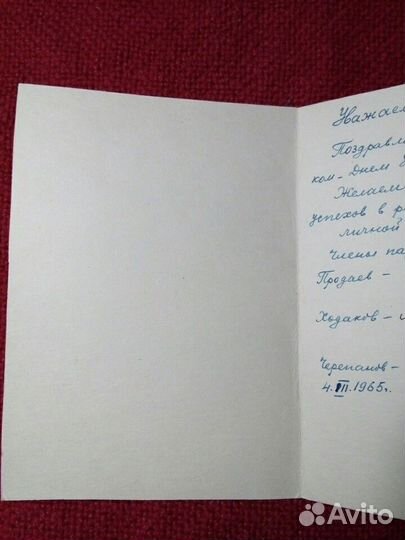 Уважаем
Поздравл
ком – Днем
Желаем
успехов в р
личной
Члены па
Продаев –
Ходаков –
Черепанов –
4.III.1965г.
Avito